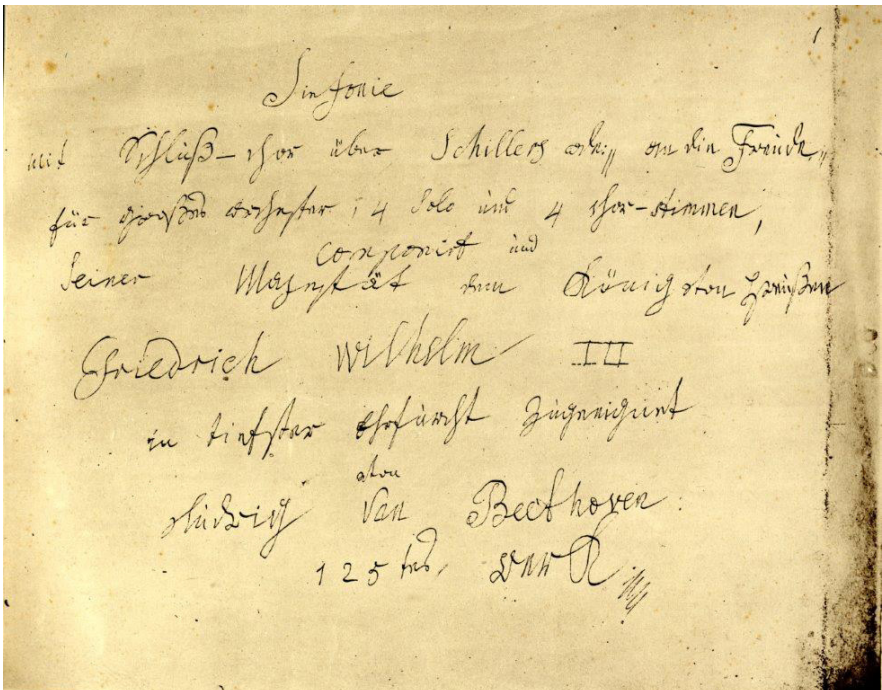 1
Sinfonie
mit Schluß-chor über Schillers ode: „an die Freude„
für großes orchester, 4 Solo und 4 chor-stimmen,
componirt und
Seiner Majestät dem König von Preußen
Friedrich Wilhelm III
in tiefster Ehrfurcht zugeeignet
von
Ludwig van Beethoven
125tes Werk